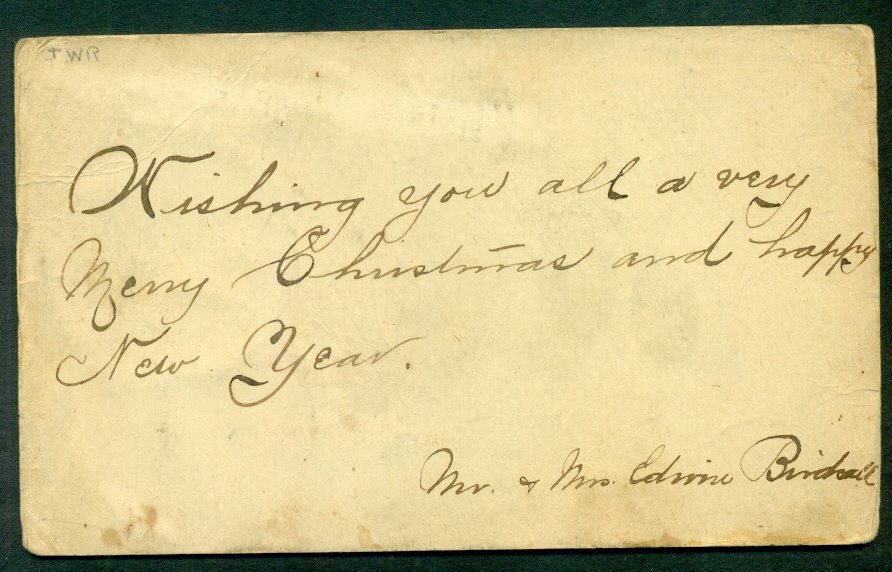 Wishing you all a very
Merry Christmas and happy
New Year.
Mr. & Mrs. Edwin Birdsall